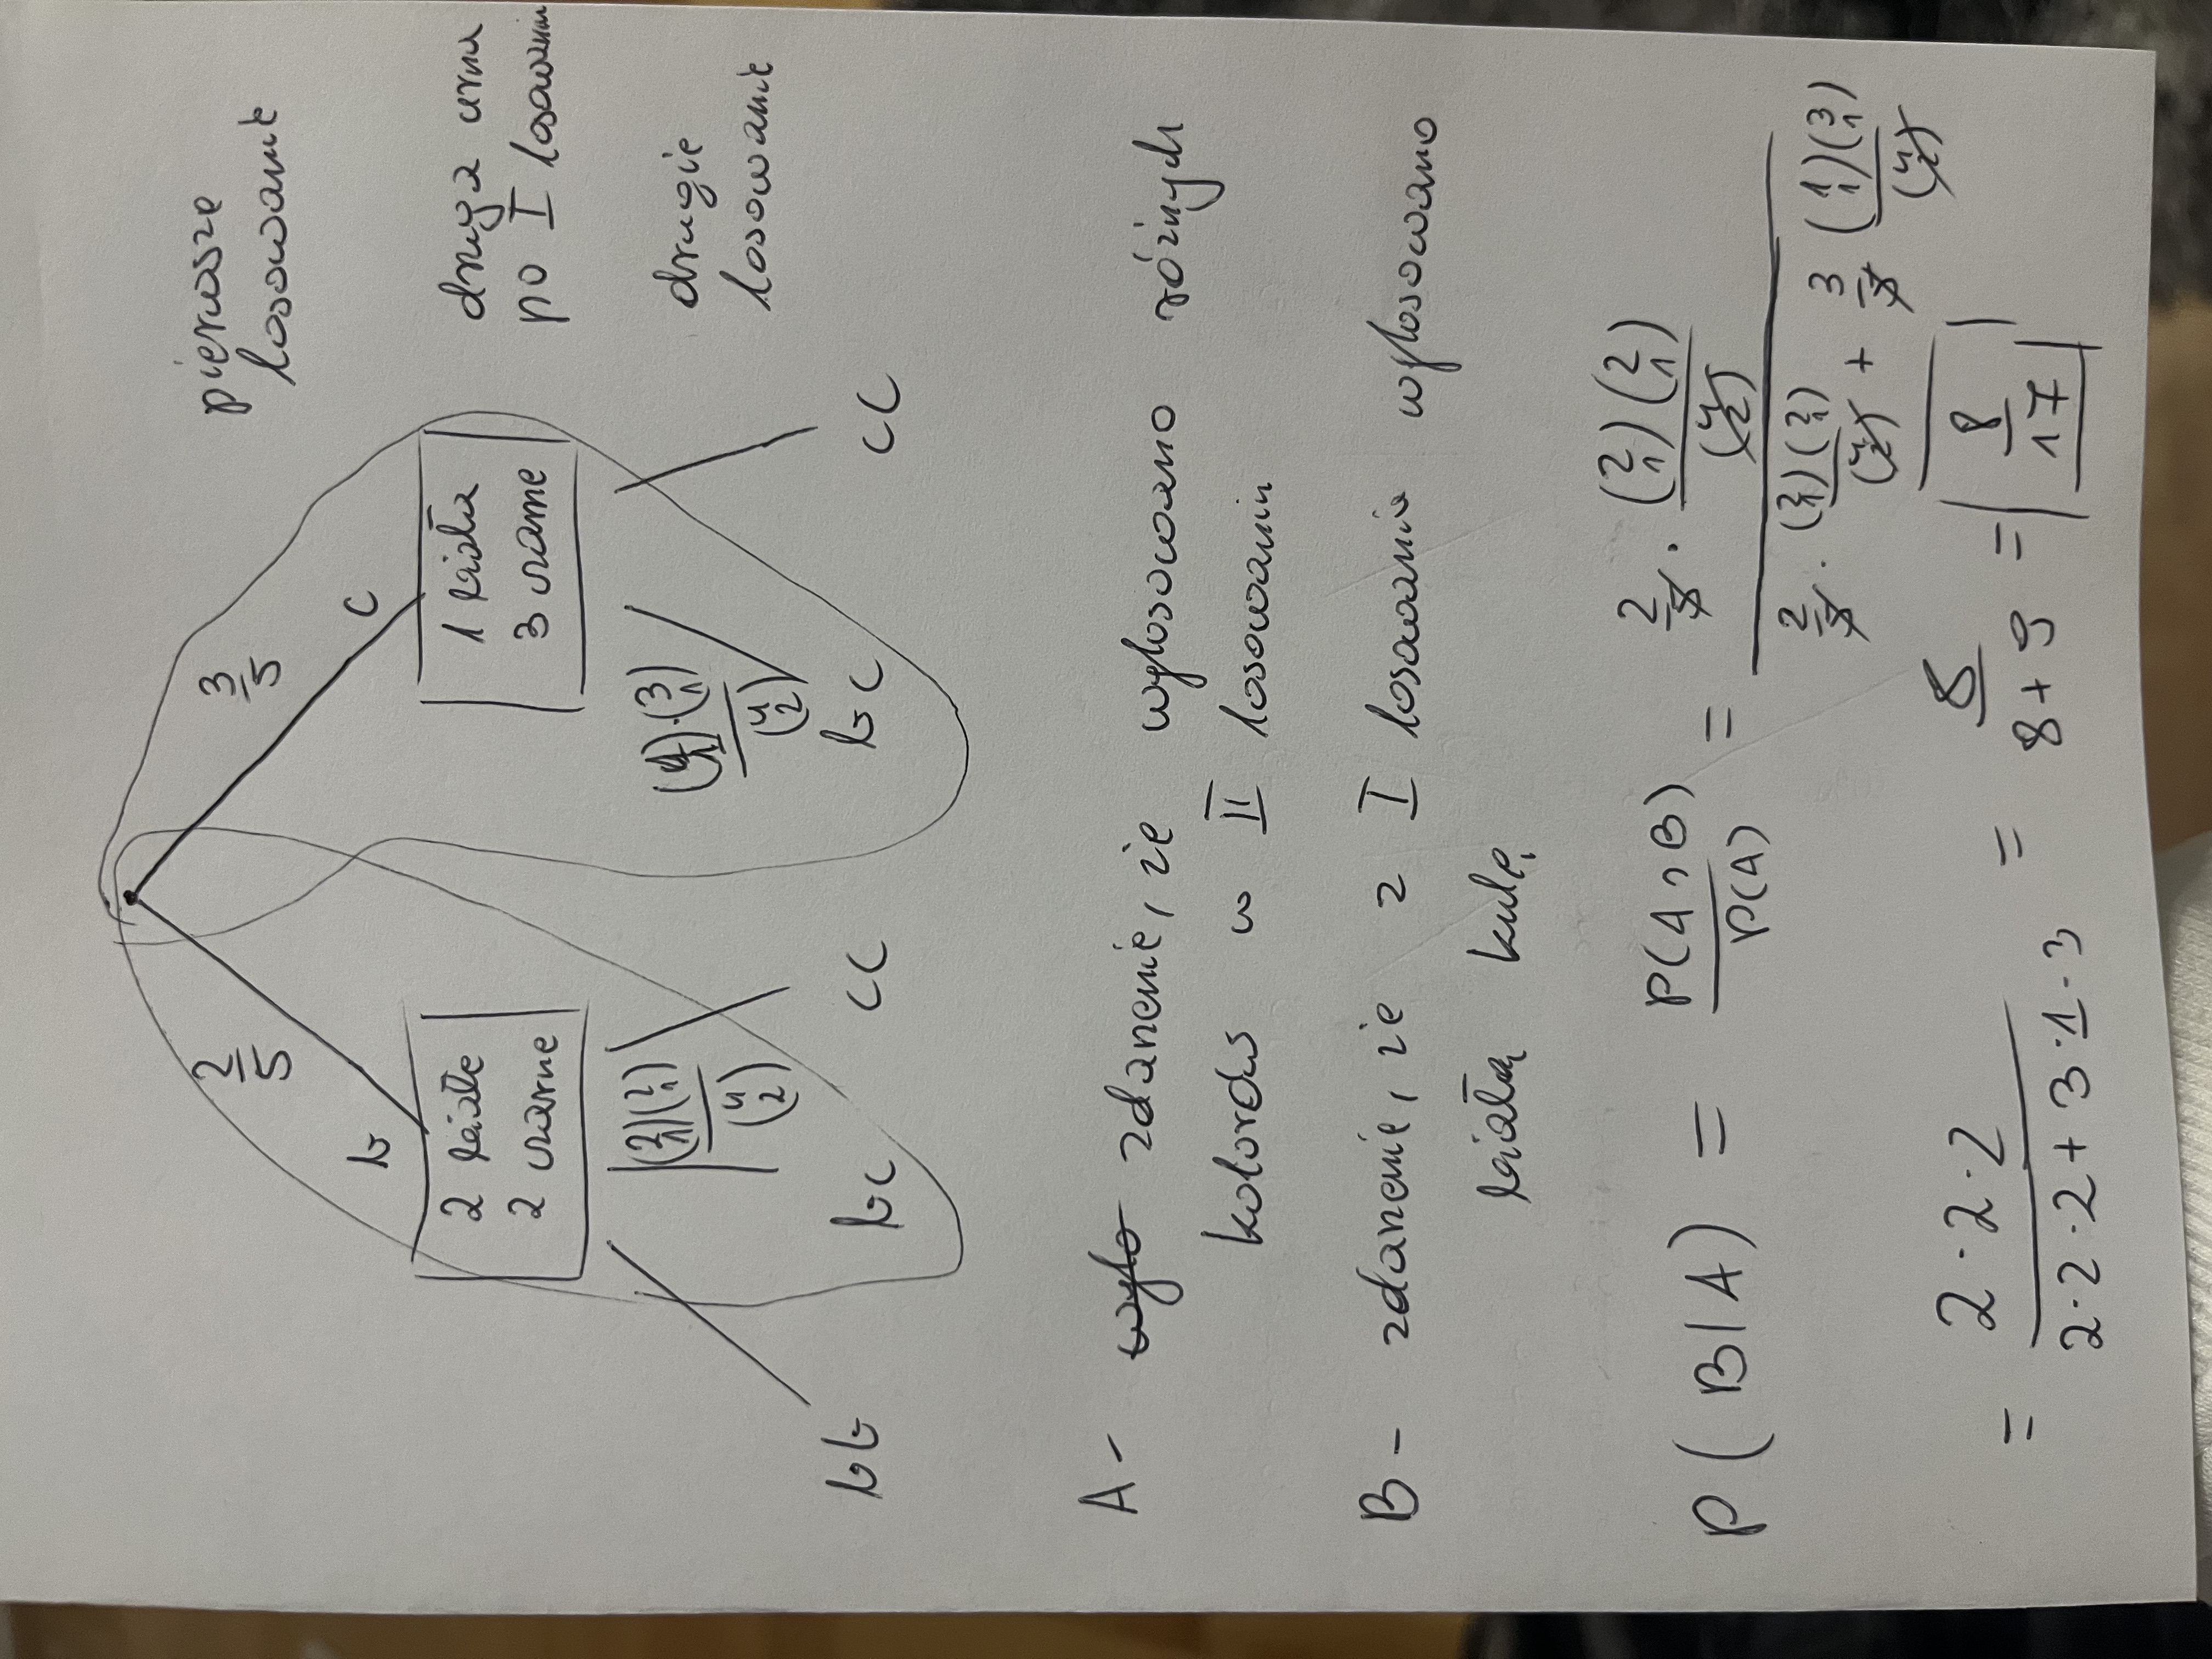 pierwsze
losowanie
2/5 3/5
b c
2 białe 1 biała
2 czarne 3 czarne
druga urna
po I losowaniu
drugie
losowanie
(2 1)(2 1)/(4 2) (1 1)·(3 1)/(4 2)
bb bc cc bc cc
A - wylo zdarzenie, że wylosowano różnych
kolorów w II losowaniu
B - zdarzenie, że z I losowania wylosowano
białą kulę
P(B|A) = P(A∩B)/P(A) = (2/5 · (2 1)(2 1)/(4 2)) / (2/5 · (2 1)(2 1)/(4 2) + 3/5 (1 1)(3 1)/(4 2))
= 2·2·2/(2·2·2+3·1·3) = 8/(8+9) = 8/17